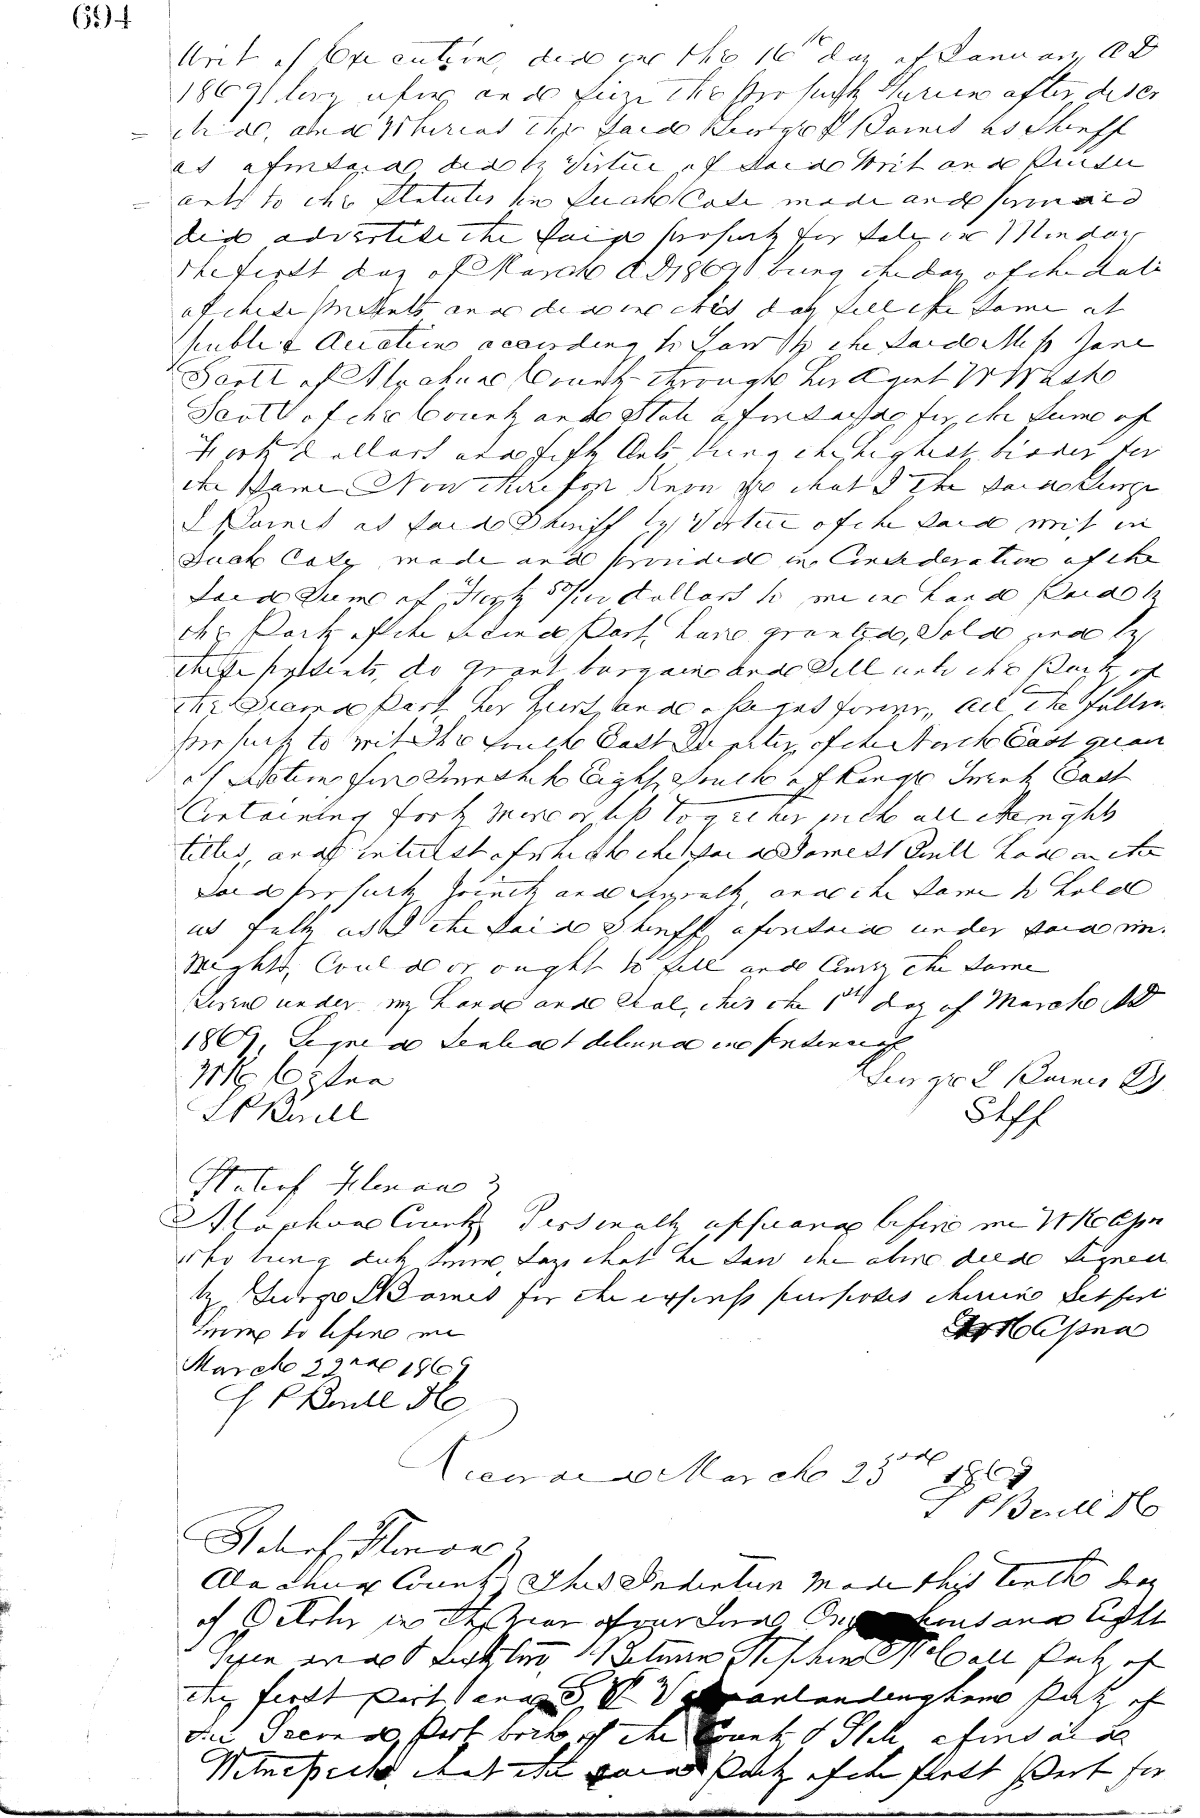 694
Writ of Execution, did on the 16th day of January AD
1869 levy upon and Seize the property Herein after discr
ibed, and Whereas the Said George L Barnes as Sheriff
as aforesaid did by Virtue of Said Writ and Pursu
ant to the Statutes in Such Case made and provided
did advertise the Said property for Sale on Monday
the first day of March AD 1869 being the day of the date
of these presents and did on this day Sell the Same at
public Auction according to Law to the Said Miss Jane
Scott of Alachua County through her Agent W Wash
Scott of the County and State aforesaid for the Sum of
Forty Dollars and fifty Cents being the highest bidder for
the Same Now therefor Know ye that I the said George
L Barnes as Said Sheriff by Virtue of the Said writ in
Such Case made and provided in Consideration of the
Said Sum of Forty 50/100 dollars to me in hand Paid by
the Party of the Second Part, have granted, Sold and by
these presents, do grant bargain and Sell unto the Party of
the Second Part her heirs and assigns forever, all the follow.
property to wit The South East Quarter of the North East quar
of Section five Township Eight South of Range Twenty East
Containing forty more or less together with all the rights
titles, and interest of which the said James Scull had on the
Said property Jointly and Severally, and the Same to hold
as fully as I the Said Sheriff aforesaid under said wri.
Might, Could or ought to Sell and Convey the Same
Given under my hand and Seal, this the 1st day of March AD
1869, Signed Sealed & delivered in presence of
W K Cessna George L Barnes
L P Bevill Shff
State of Florida }
Alachua County } Personally appeared before me W K Cessna
who being duly Sworn, Says that he Saw the above deed Signed
by George L Barnes for the express purposes therein Set forth
Sworn to before me W K Cessna
March 22nd 1869
L P Bevill
Recorded March 23rd 1869
L P Bevill
State of Florida }
Alachua County } This Indenture Made this tenth day
of October in the Year of our Lord One thousand Eight
and Sixty two, Between Stephen McCall Party of
the first Part and S V Vanlandengham Party of
the Second Part both of the County & State aforesaid
Witnesseth, that the said Party of the first Part for